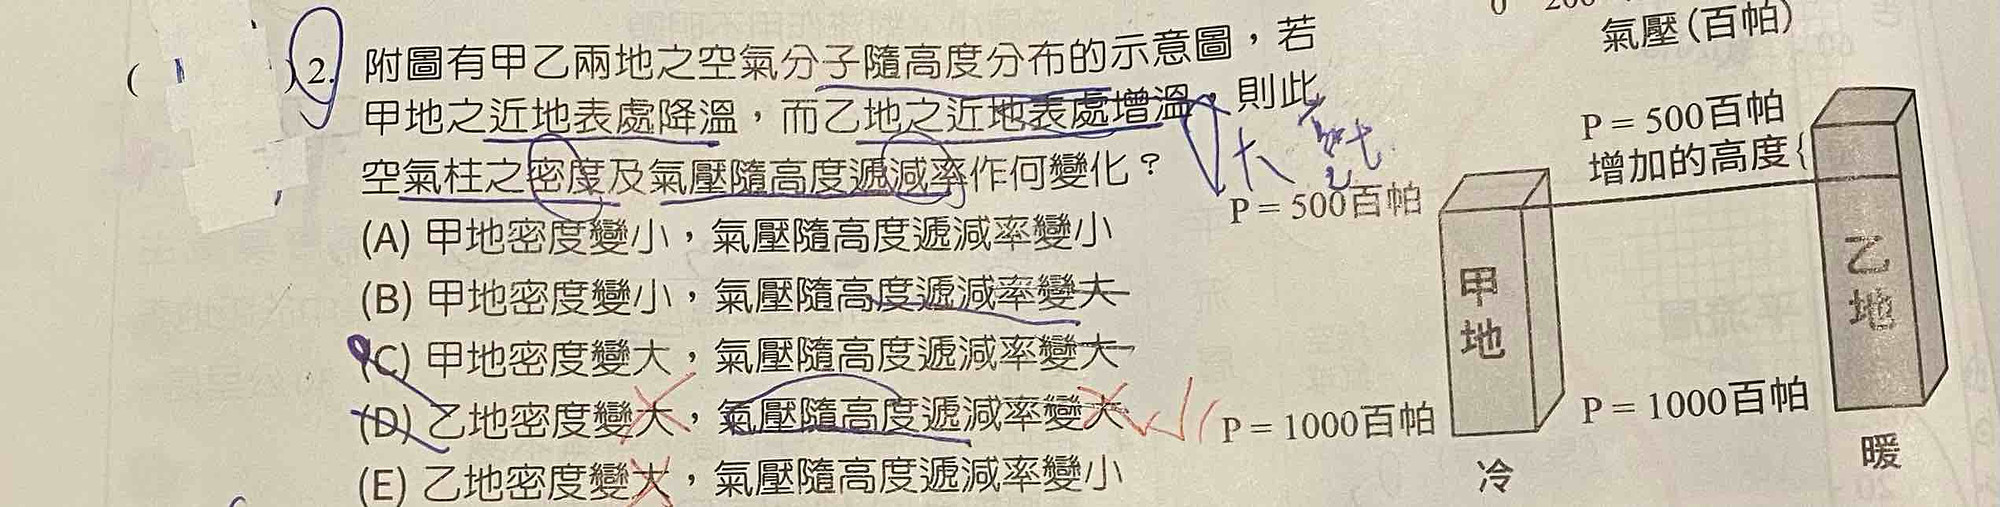 氣壓(百帕)
( ) 2. 附圖有甲乙兩地之空氣分子隨高度分布的示意圖，若
甲地之近地表處降溫，而乙地之近地表處增溫，則此
空氣柱之密度及氣壓隨高度遞減率作何變化？
(A) 甲地密度變小，氣壓隨高度遞減率變小
(B) 甲地密度變小，氣壓隨高度遞減率變大
(C) 甲地密度變大，氣壓隨高度遞減率變大
(D) 乙地密度變大，氣壓隨高度遞減率變大
(E) 乙地密度變大，氣壓隨高度遞減率變小
P = 500百帕
增加的高度
P = 500百帕
甲地
乙地
P = 1000百帕
P = 1000百帕
冷
暖